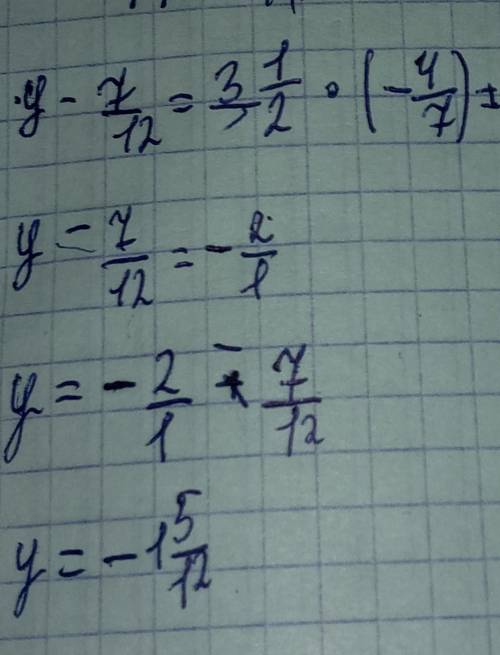 y - 7/12 = 3 1/2 · (-4/7)
y - 7/12 = - 2/1
y = - 2/1 + 7/12
y = -1 5/12